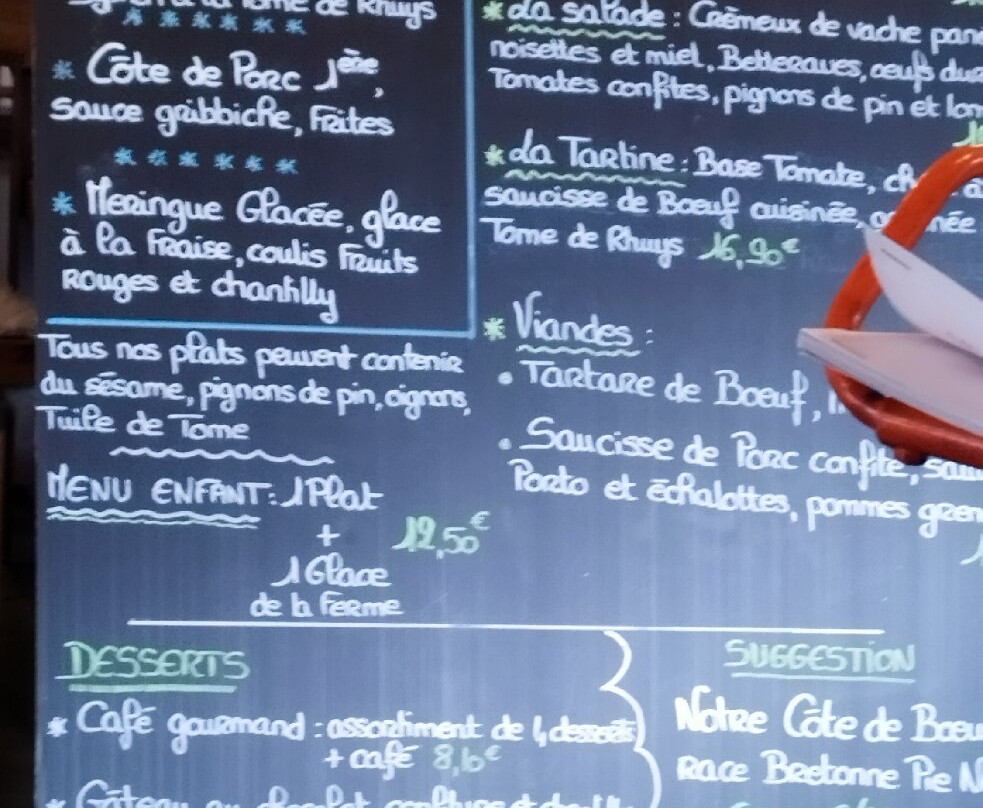 de Rhuys
* * * * * *
* Côte de Porc 1ère,
Sauce gribbiche, Frites
* * * * * *
* Meringue Glacée, glace
à la Fraise, coulis Fruits
Rouges et chantilly
Tous nos plats peuvent contenir
du sésame, pignons de pin, oignons,
Tuile de Tome
MENU ENFANT : 1 Plat
+ 12,50€
1 Glace
de la Ferme
* La salade : Crémeux de vache
noisettes et miel, Betteraves, oeufs
Tomates confites, pignons de pin et
* La Tartine : Base Tomate,
saucisse de Boeuf cuisinée,
Tome de Rhuys 16,90€
* Viandes :
• Tartare de Boeuf,
• Saucisse de Porc confite,
Porto et échalottes, pommes
DESSERTS
* Café gourmand : assortiment de 4 desserts
+ café 8,10€
* Gâteau au chocolat, confiture et
SUGGESTION
Notre Côte de
Race Bretonne Pie